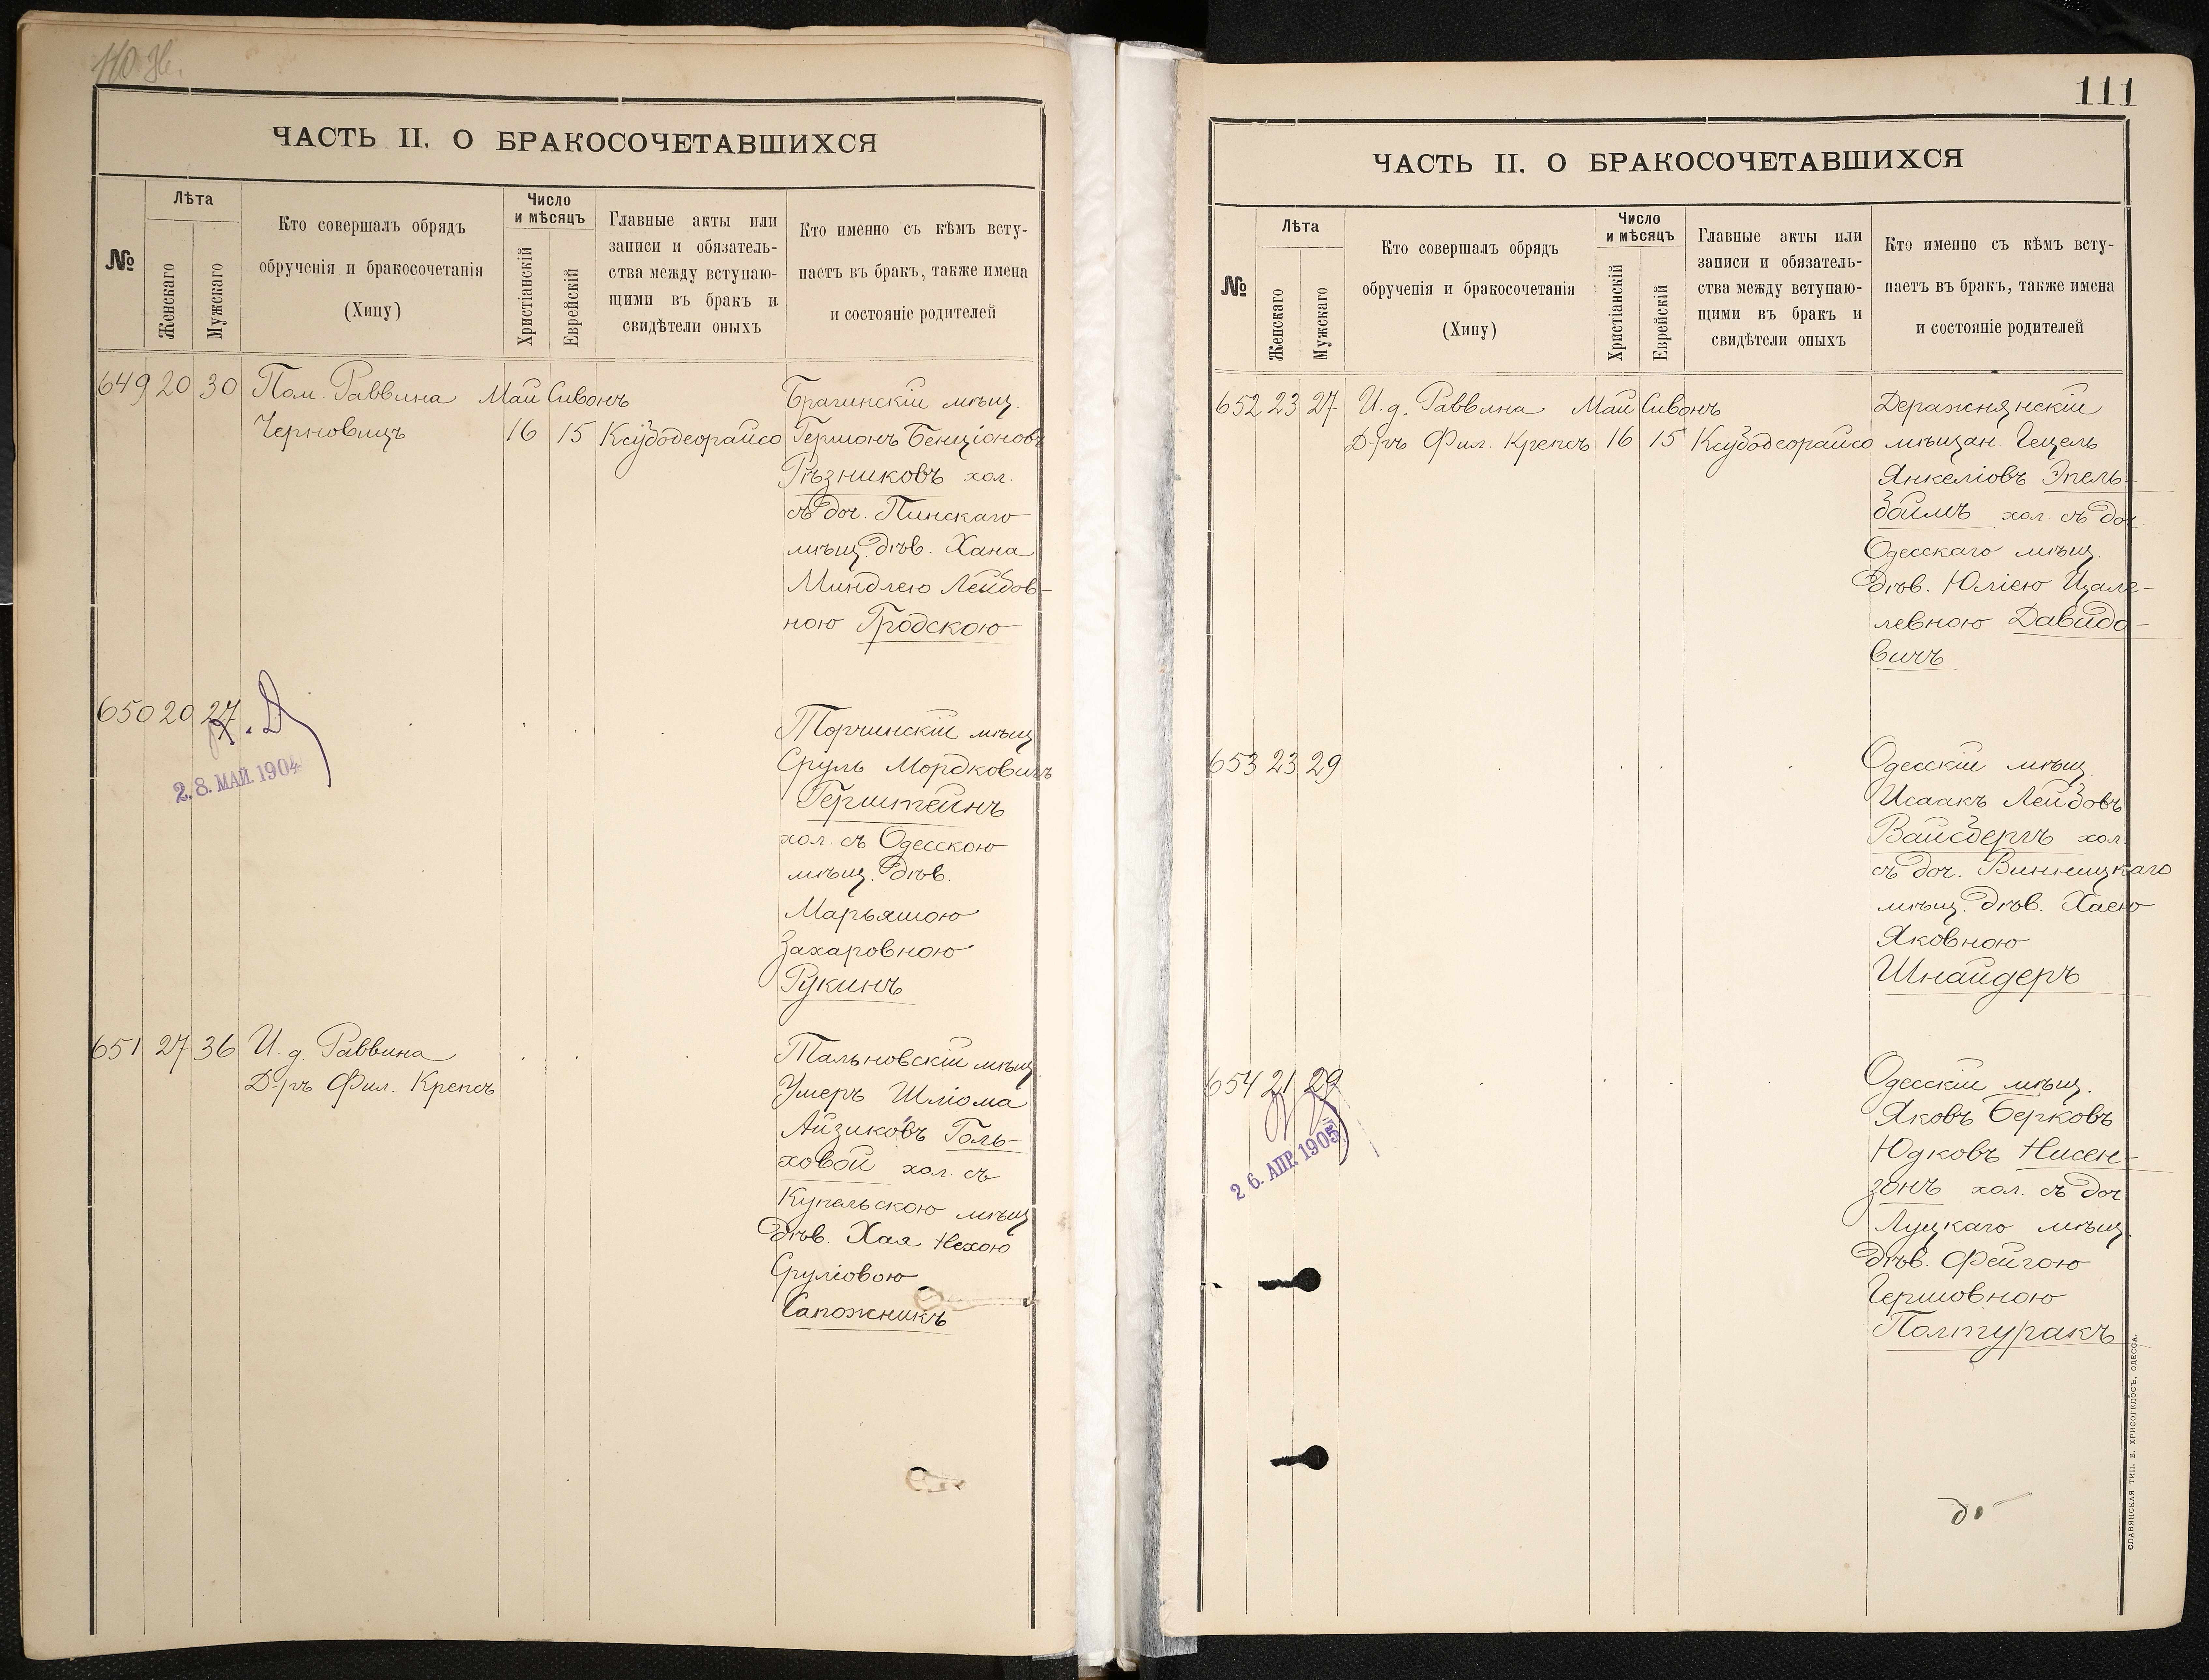 ЧАСТЬ II. О БРАКОСОЧЕТАВШИХСЯ
№
Лѣта
Женскаго
Мужскаго
Кто совершалъ обрядъ
обрученія и бракосочетанія
(Хипу)
Число
и мѣсяцъ
Христіанскій
Еврейскій
Главные акты или
записи и обязатель-
ства между вступаю-
щими въ бракъ и
свидѣтели оныхъ
Кто именно съ кѣмъ всту-
паетъ въ бракъ, также имена
и состояніе родителей
649 20 30 Пом. Раввина Май Сивонъ Брагинскій мѣщ.
Черновицъ 16 15 Ксубодеорайсо Германъ Бенціоновъ
Рѣзниковъ хол.
съ доч. Пинскаго
мѣщ. дѣв. Хана
Миндлею Лейбов-
ною Гродскою
650 20 27 Торчинскій мѣщ
Сруль Мордковичъ
Герштейнъ
хол. съ Одесскою
мѣщ. дѣв.
Марьяшою
Захаровною
Рукинъ
28. МАЙ. 1904
651 27 36 И. д. Раввина Тальновскій мѣщ.
Д-ръ Фил. Крепсъ Умеръ Шліома
Айзиковъ Голь-
ховой хол. съ
Купельскою мѣщ
дѣв. Хая Нехою
Сруліовою
Сапожникъ
111
ЧАСТЬ II. О БРАКОСОЧЕТАВШИХСЯ
№
Лѣта
Женскаго
Мужскаго
Кто совершалъ обрядъ
обрученія и бракосочетанія
(Хипу)
Число
и мѣсяцъ
Христіанскій
Еврейскій
Главные акты или
записи и обязатель-
ства между вступаю-
щими въ бракъ и
свидѣтели оныхъ
Кто именно съ кѣмъ всту-
паетъ въ бракъ, также имена
и состояніе родителей
652 23 27 И. д. Раввина Май Сивонъ Деражнянскій
Д-ръ Фил. Крепсъ 16 15 Ксубодеорайсо мѣщан. Гецель
Янкеліовъ Эпель-
боймъ хол. съ доч.
Одесскаго мѣщ.
дѣв. Юліею Цале-
левною Давидо-
вичъ
653 23 29 Одесскій мѣщ.
Исаакъ Лейбовъ
Вайсбергъ хол.
съ доч. Винницкаго
мѣщ. дѣв. Хаею
Яковною
Шнайдеръ
654 21 29 Одесскій мѣщ.
Яковъ Берковъ
Юдковъ Нисен-
зонъ хол. съ доч
Луцкаго мѣщ.
дѣв. Фейгою
Гершовною
Полтуракъ
26. АПР. 1905
СЛАВЯНСКАЯ ТИП. Е. ХРИСОГЕЛОСЪ, ОДЕССА.